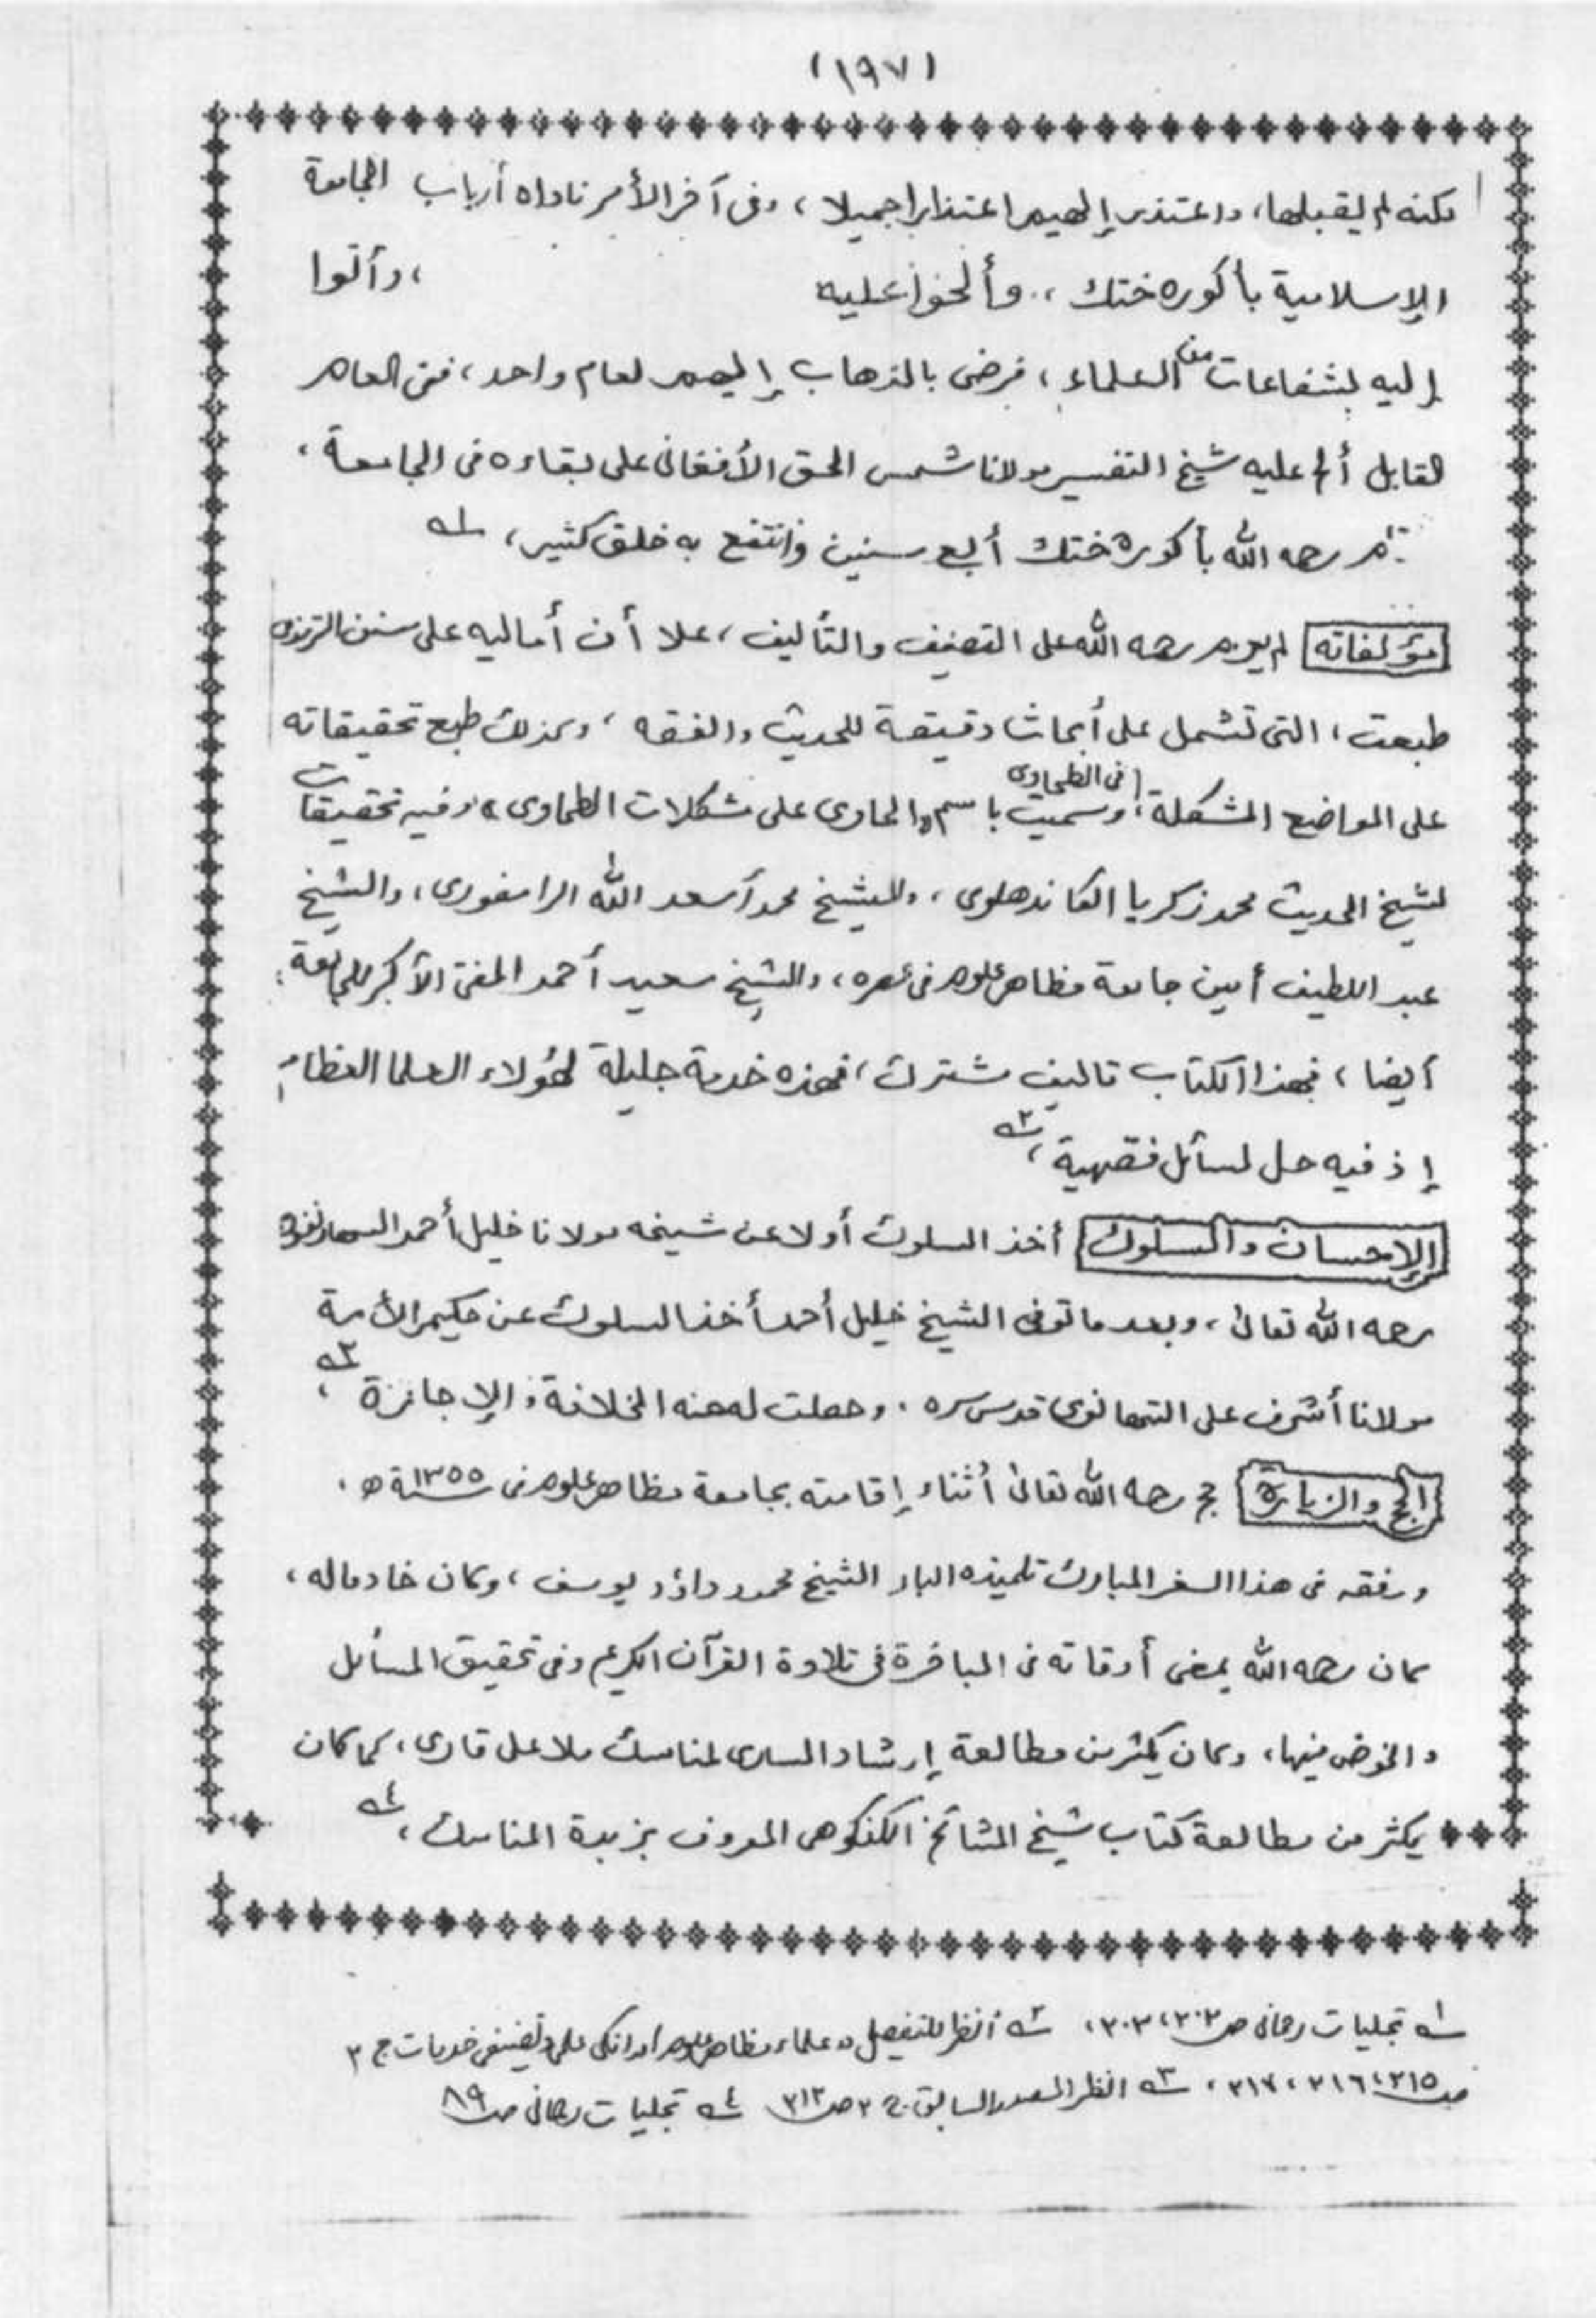 (١٩٧)
لكنه لم يقبلها، واعتذر إليهم اعتذارا جميلا، وفى آخر الأمر ناداه أرباب الجامعة
الإسلامية بأكوره ختك، وألحوا عليه ، وأتوا
إليه بشفاعات من العلماء، فرضى بالذهاب إليهم لعام واحد، ففى العام
القابل ألح عليه شيخ التفسير مولانا شمس الحق الأفغانى على بقاءه فى الجامعة،
رحمه الله بأكوره ختك أربع سنين وانتفع به خلق كثير، ١ـه
مؤلفاته لم يعزم رحمه الله على التصنيف والتأليف، علا أن أماليه على سنن الترمذى
طبعت، التى تشمل على أبحاث دقيقة للحديث والفقه، وكذلك طبع تحقيقاته
على المواضع المشكلة فى الطحاوى، وسميت باسم «الحاوى على مشكلات الطحاوى» وفيه تحقيقات
لشيخ الحديث محمد زكريا الكاندهلوى، وللشيخ محمد أسعد الله الرامفورى، والشيخ
عبد اللطيف أمين جامعة مظاهر علوم فى عصره، وللشيخ سعيد أحمد المفتى الأكبر للجامعة
أيضا، فهذا الكتاب تاليف مشترك، فهذه خدمة جليلة لهؤلاء العلما العظام
إذ فيه حل لمسائل فقهية، ٢ـه
الإحسان والسلوك أخذ السلوك أولا عن شيخه مولانا خليل أحمد السهارنفورى
رحمه الله تعالى، وبعد ما توفى الشيخ خليل أحمد أخذ السلوك عن حكيم الأمة
مولانا أشرف على التهانوى قدس سره. وحصلت له منه الخلافة والإجازة، ٣ـه
الحج والزيارة حج رحمه الله تعالى أثناء إقامته بجامعة مظاهر علوم فى سنة ١٣٥٥ه.
ورفقه فى هذا السفر المبارك تلميذه البار الشيخ محمود داؤد يوسف، وكان خادما له،
كان رحمه الله يمضى أوقاته فى الباخرة فى تلاوة القرآن الكريم وفى تحقيق المسائل
والخوض فيها، وكان يكثر من مطالعة إرشاد السارى لمناسك ملا على قارى، كما كان
يكثر من مطالعة كتاب شيخ المشائخ الكنكوهى المعروف بزبدة المناسك، ٤ـه
١ـه تجليات رحمانى ص ٣٠٢، ٣٠٣، ٢ـه أنظر للتفصيل «علماء مظاهر علوم اور انكى علمى وتصنيفى خدمات ج ٣
ص ٢١٥، ٢١٦، ٢١٧، ٣ـه انظر المصدر السابق ج ٢ ص ٢١٣ ٤ـه تجليات رحمانى ص ٨٩